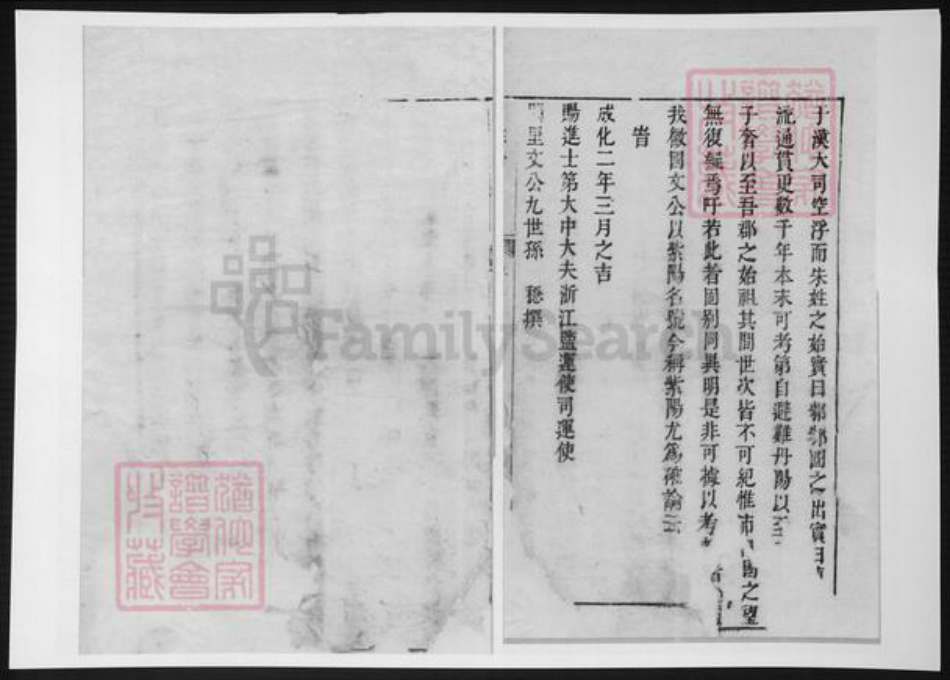 于漢大司空浮而朱姓之始實曰邾邾國之出實曰
流通貫更數千年本末可考第自避難丹陽以至
子奢以至吾郡之始祖其間世次皆不可紀惟沛國之望
無復疑焉吁若此者固别同異明是非可據以考
我徽國文公以紫陽名號今稱紫陽尤為確論云
旹
成化二年三月之吉
賜進士第大中大夫浙江鹽運使司運使
里文公九世孫 穏撰
FamilySearch
譜學會
收藏